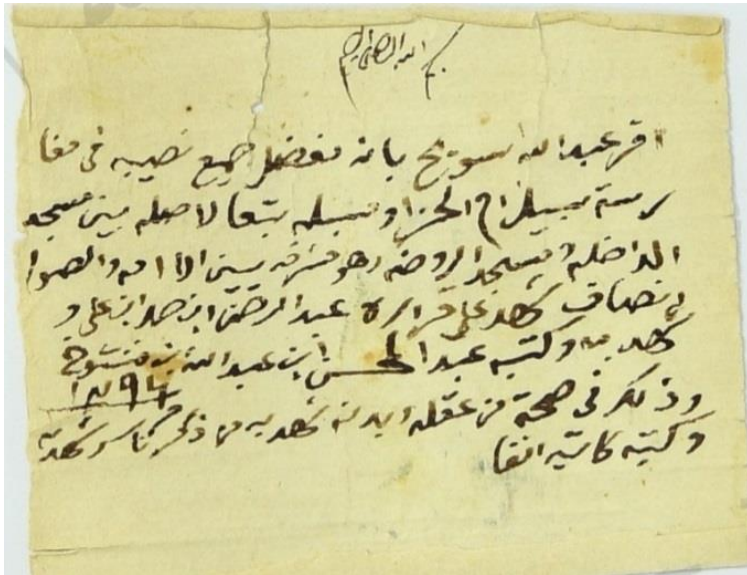 بسم الله الرحمن الرحيم
اقر عبدالله سويح بانه جميع نصيبه في مغا
رسة سبيل تبعا لاصله بين مسجد
الداخله ومسجد الروضه وهو بين
انصاف شهد على اقراره عبدالرحمن ابن حمد ابن علي و
شهد به وكتبه عبدالمحسن ابن عبدالله بن
وذلك في صحة من عقله وبدنه شهد به من ذكر شهد به
وكتبه كاتبه انفا